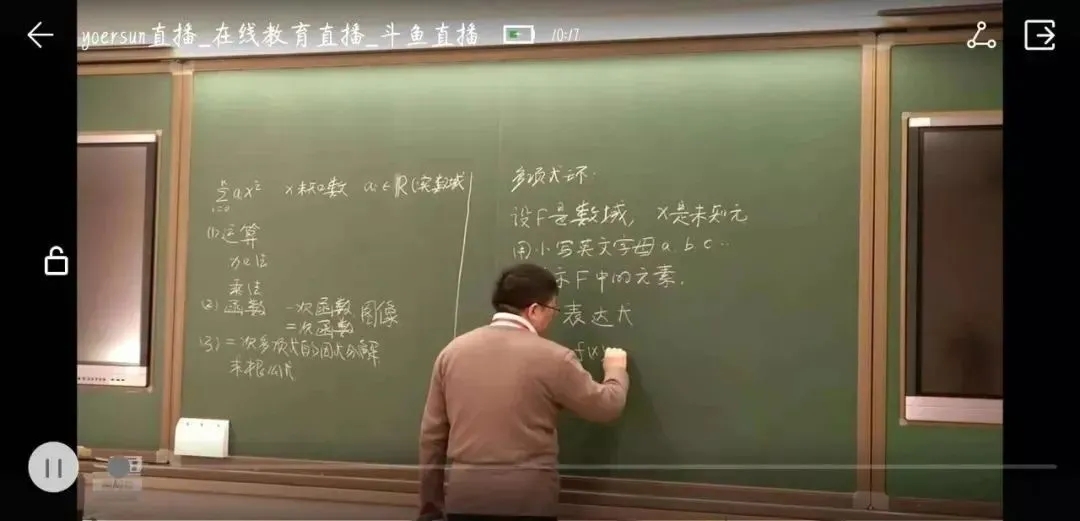 yoersun直播_在线教育直播_斗鱼直播 10:17
n
∑ aᵢxⁱ x未知数 aᵢ∈ℝ(实数域
i=0
(1)运算
加法
乘法
(2)函数 一次函数 图像
二次函数
(3)二次多项式的因式分解
求根公式
多项式环.
设F是数域, x是未知元
用小写英文字母a.b.c…
示F中的元素.
表达式
f(x)